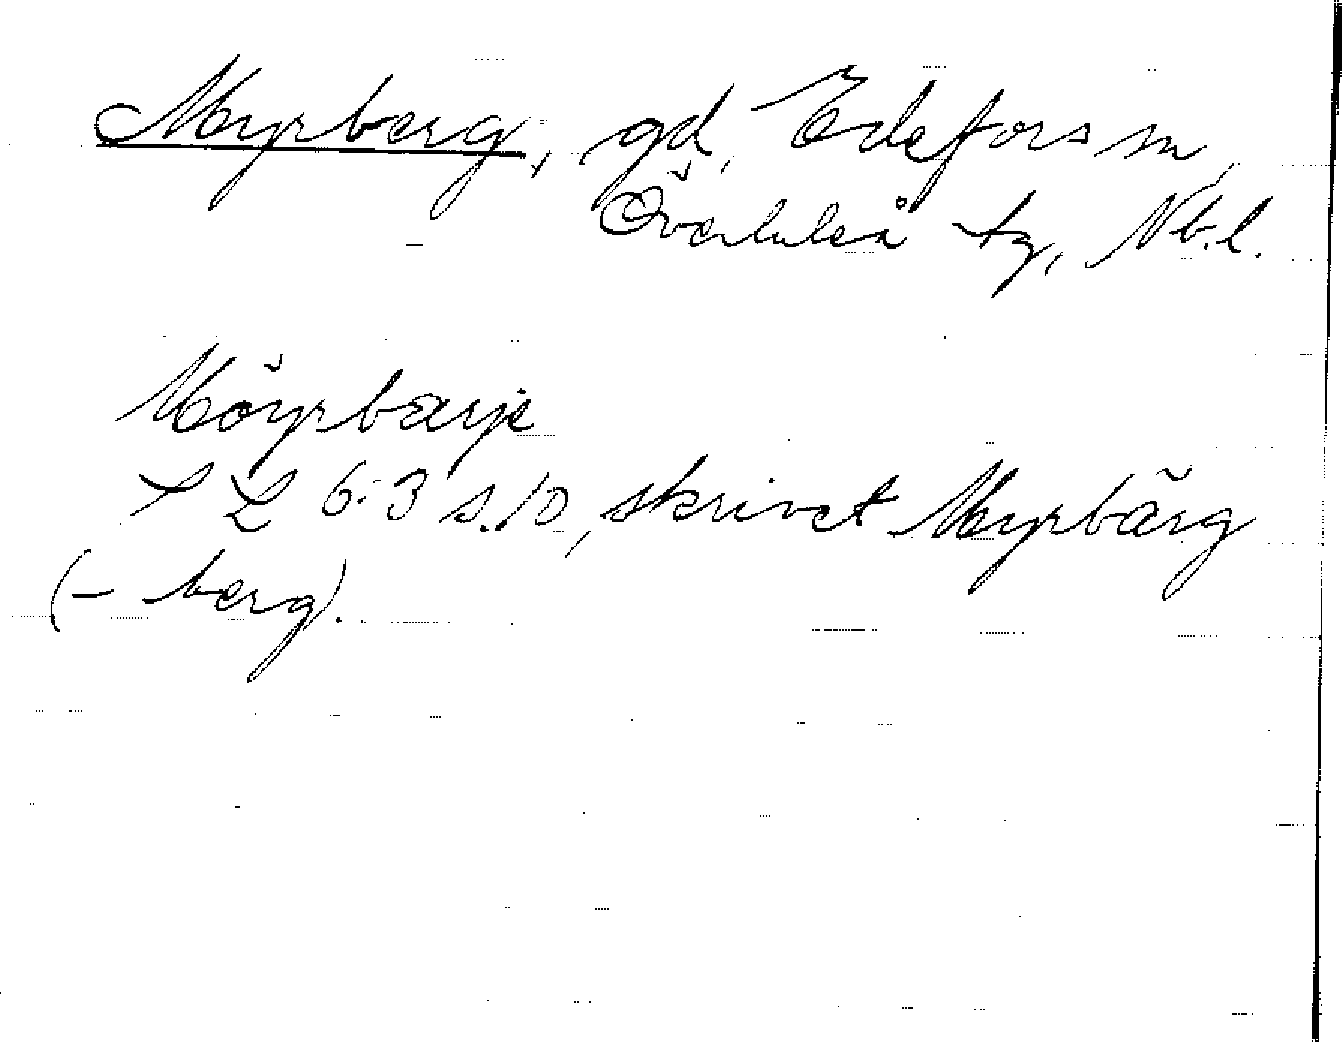 Myrberg, gd, Edefors sn,
Överluleå tg, Nb.l.
Möyrbærje
S L 6:3 s.10, skrivet Myrbärg
(- berg).